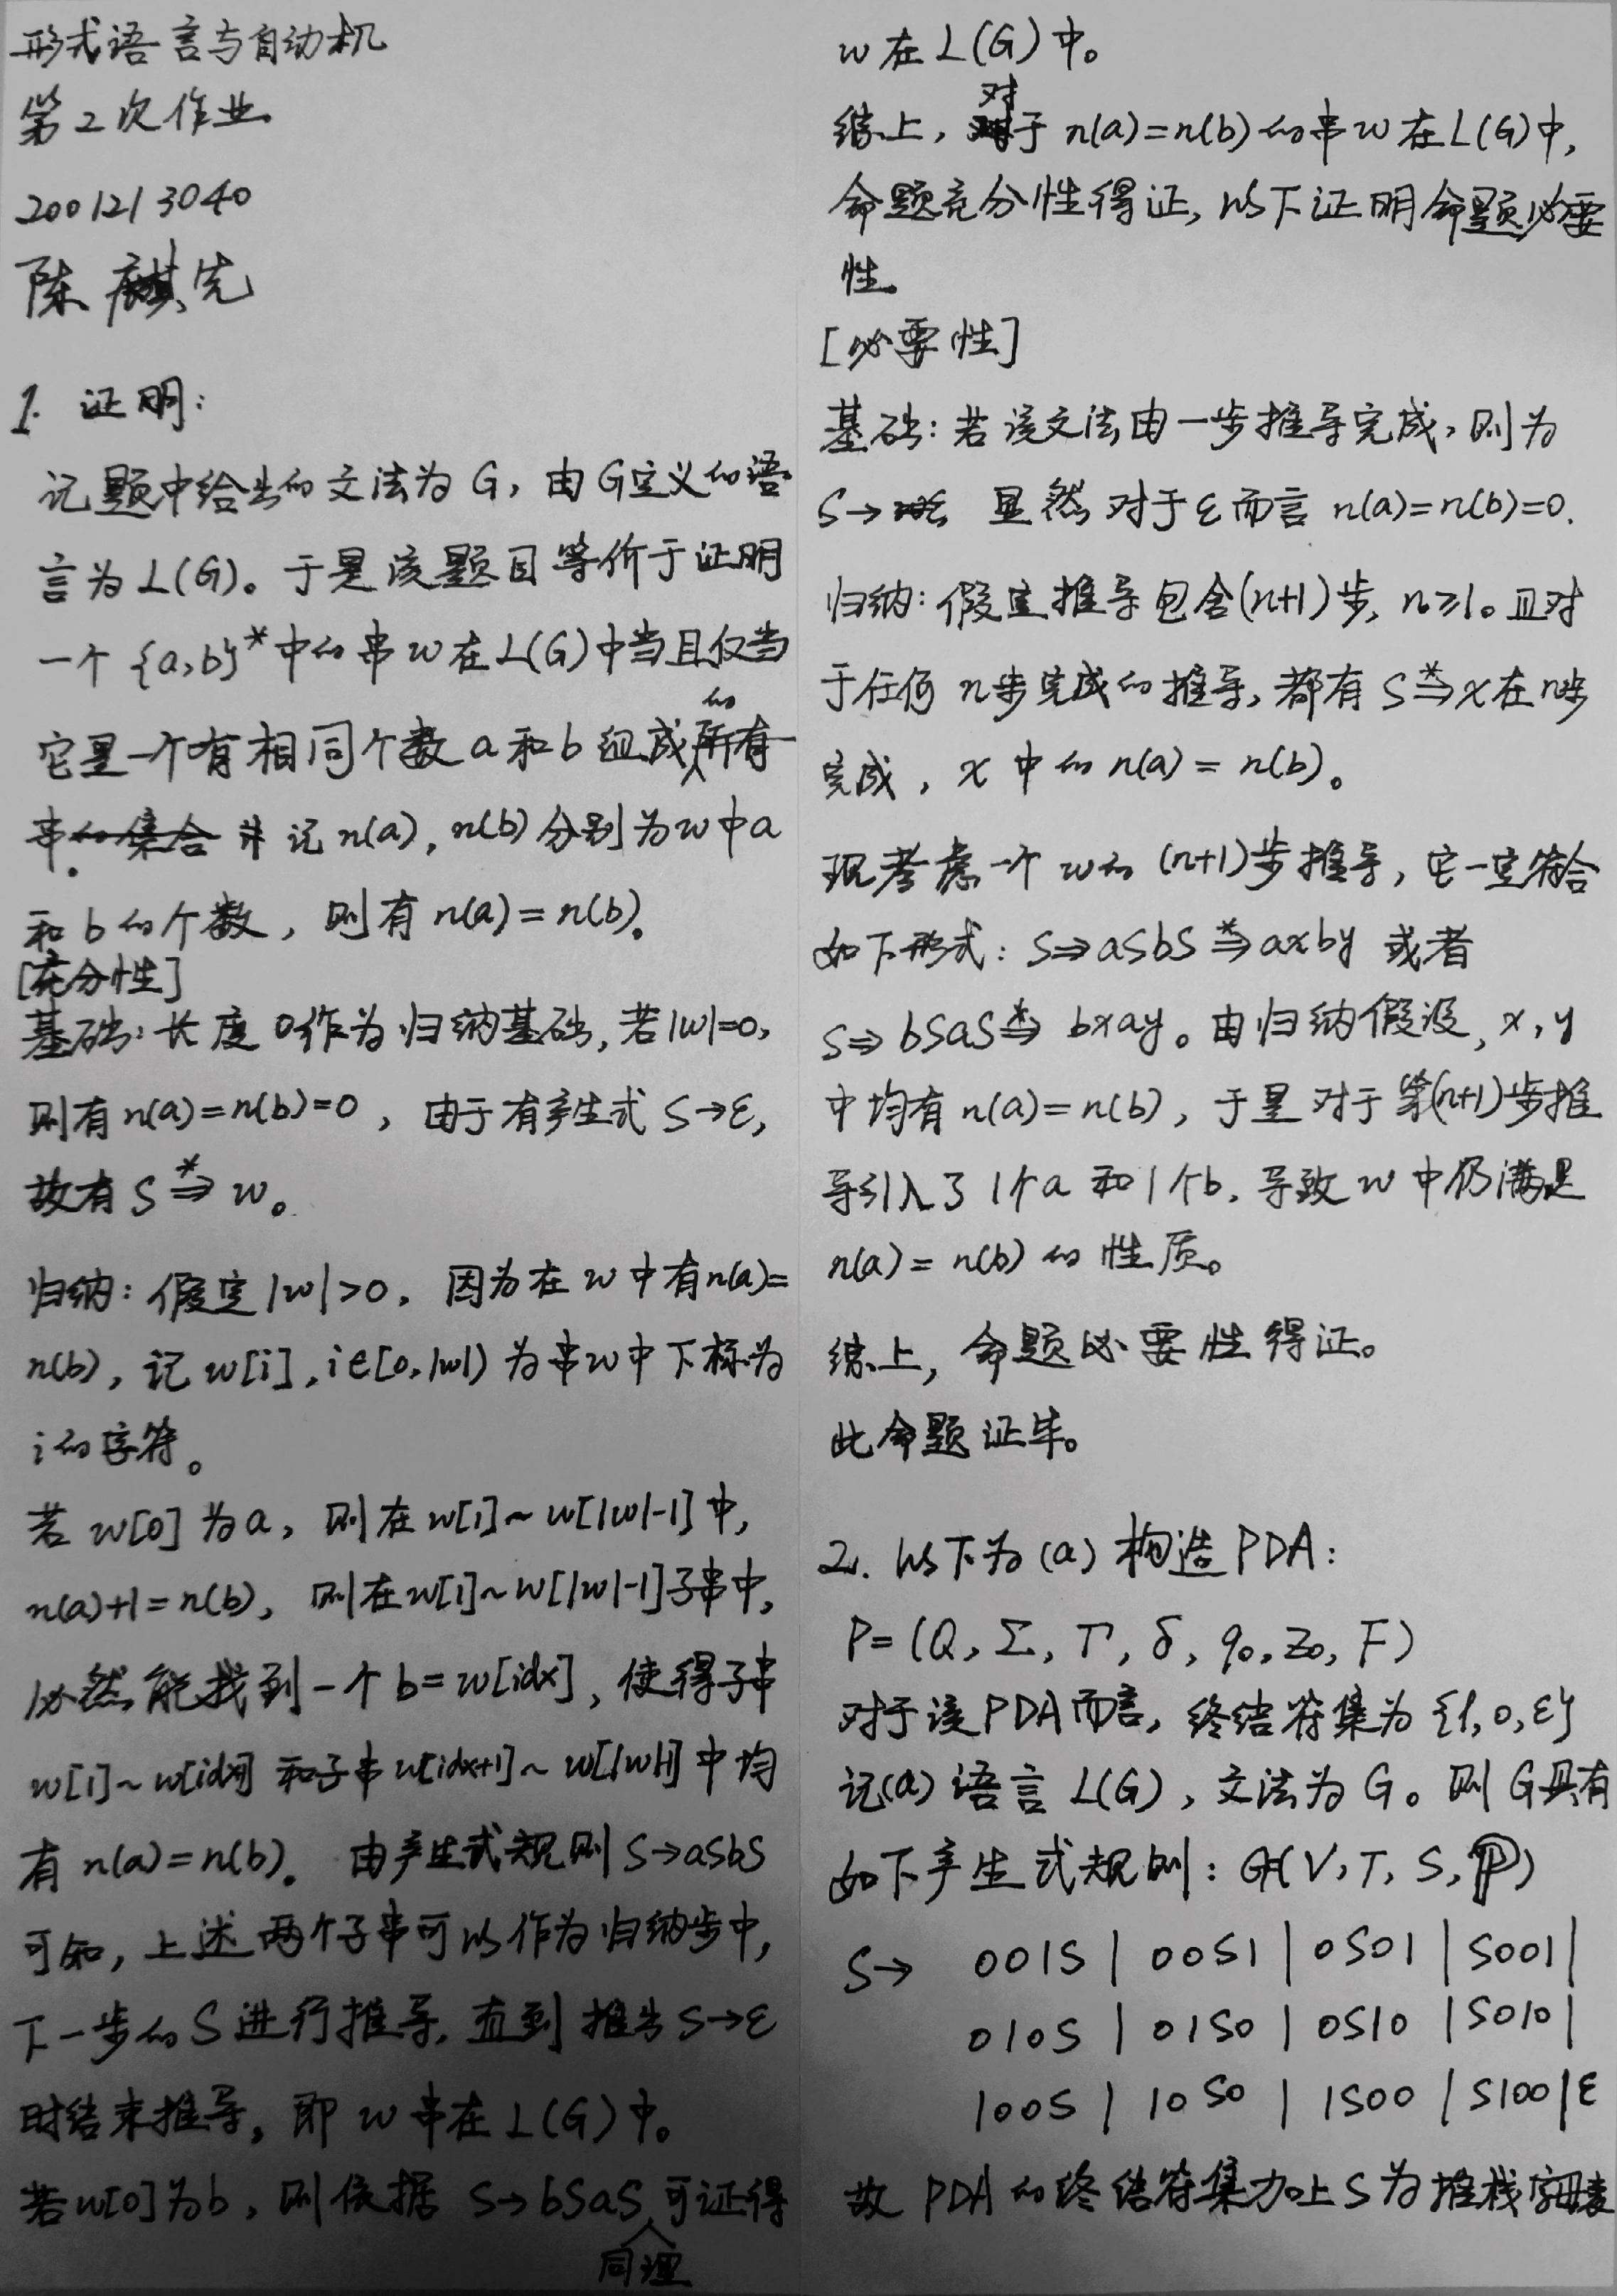 形式语言与自动机
第2次作业。
2001213040
陈麒先
1. 证明:
记题中给出的文法为G, 由G定义的语
言为L(G)。于是该题目等价于证明
一个{a,b}*中的串w在L(G)中当且仅当
它是一个有相同个数a和b组成的所有
串的集合 并记n(a), n(b)分别为w中a
和b的个数, 则有n(a)=n(b)。
[充分性]
基础: 长度0作为归纳基础, 若|w|=0,
则有n(a)=n(b)=0, 由于有产生式S→ε,
故有S⇒*w。
归纳: 假定|w|>0, 因为在w中有n(a)=
n(b), 记w[i], i∈[0,|w|)为串w中下标为
i的字符。
若w[0]为a, 则在w[1]~w[|w|-1]中,
n(a)+1=n(b), 则在w[1]~w[|w|-1]子串中,
必然能找到一个b=w[idx], 使得子串
w[1]~w[idx-1]和子串w[idx+1]~w[|w|-1]中均
有n(a)=n(b)。由产生式规则S→aSbS
可知, 上述两个子串可以作为归纳步中,
下一步的S进行推导, 直到推出S→ε
时结束推导, 即w串在L(G)中。
若w[0]为b, 则依据S→bSaS同理可证得
w在L(G)中。
综上, 对于n(a)=n(b)的串w在L(G)中,
命题充分性得证, 以下证明命题必要
性。
[必要性]
基础: 若该文法由一步推导完成, 则为
S→ε 显然对于ε而言n(a)=n(b)=0.
归纳: 假定推导包含(n+1)步, n≥1。且对
于任何n步完成的推导, 都有S⇒*x在n步
完成, x中的n(a)=n(b)。
现考虑一个w的(n+1)步推导, 它一定符合
如下形式: S⇒aSbS⇒*axby 或者
S⇒bSaS⇒*bxay。由归纳假设, x, y
中均有n(a)=n(b), 于是对于第(n+1)步推
导引入了1个a和1个b, 导致w中仍满足
n(a)=n(b)的性质。
综上, 命题必要性得证。
此命题证毕。
2. 以下为(a)构造PDA:
P=(Q, Σ, Γ, δ, q₀, z₀, F)
对于该PDA而言, 终结符集为{1,0,ε}
记(a)语言L(G), 文法为G。则G具有
如下产生式规则: G=(V, T, S, P)
S→ 001S | 00S1 | 0S01 | S001 |
010S | 01S0 | 0S10 | S010 |
100S | 10S0 | 1S00 | S100 | ε
故PDA的终结符集加上S为堆栈字母表